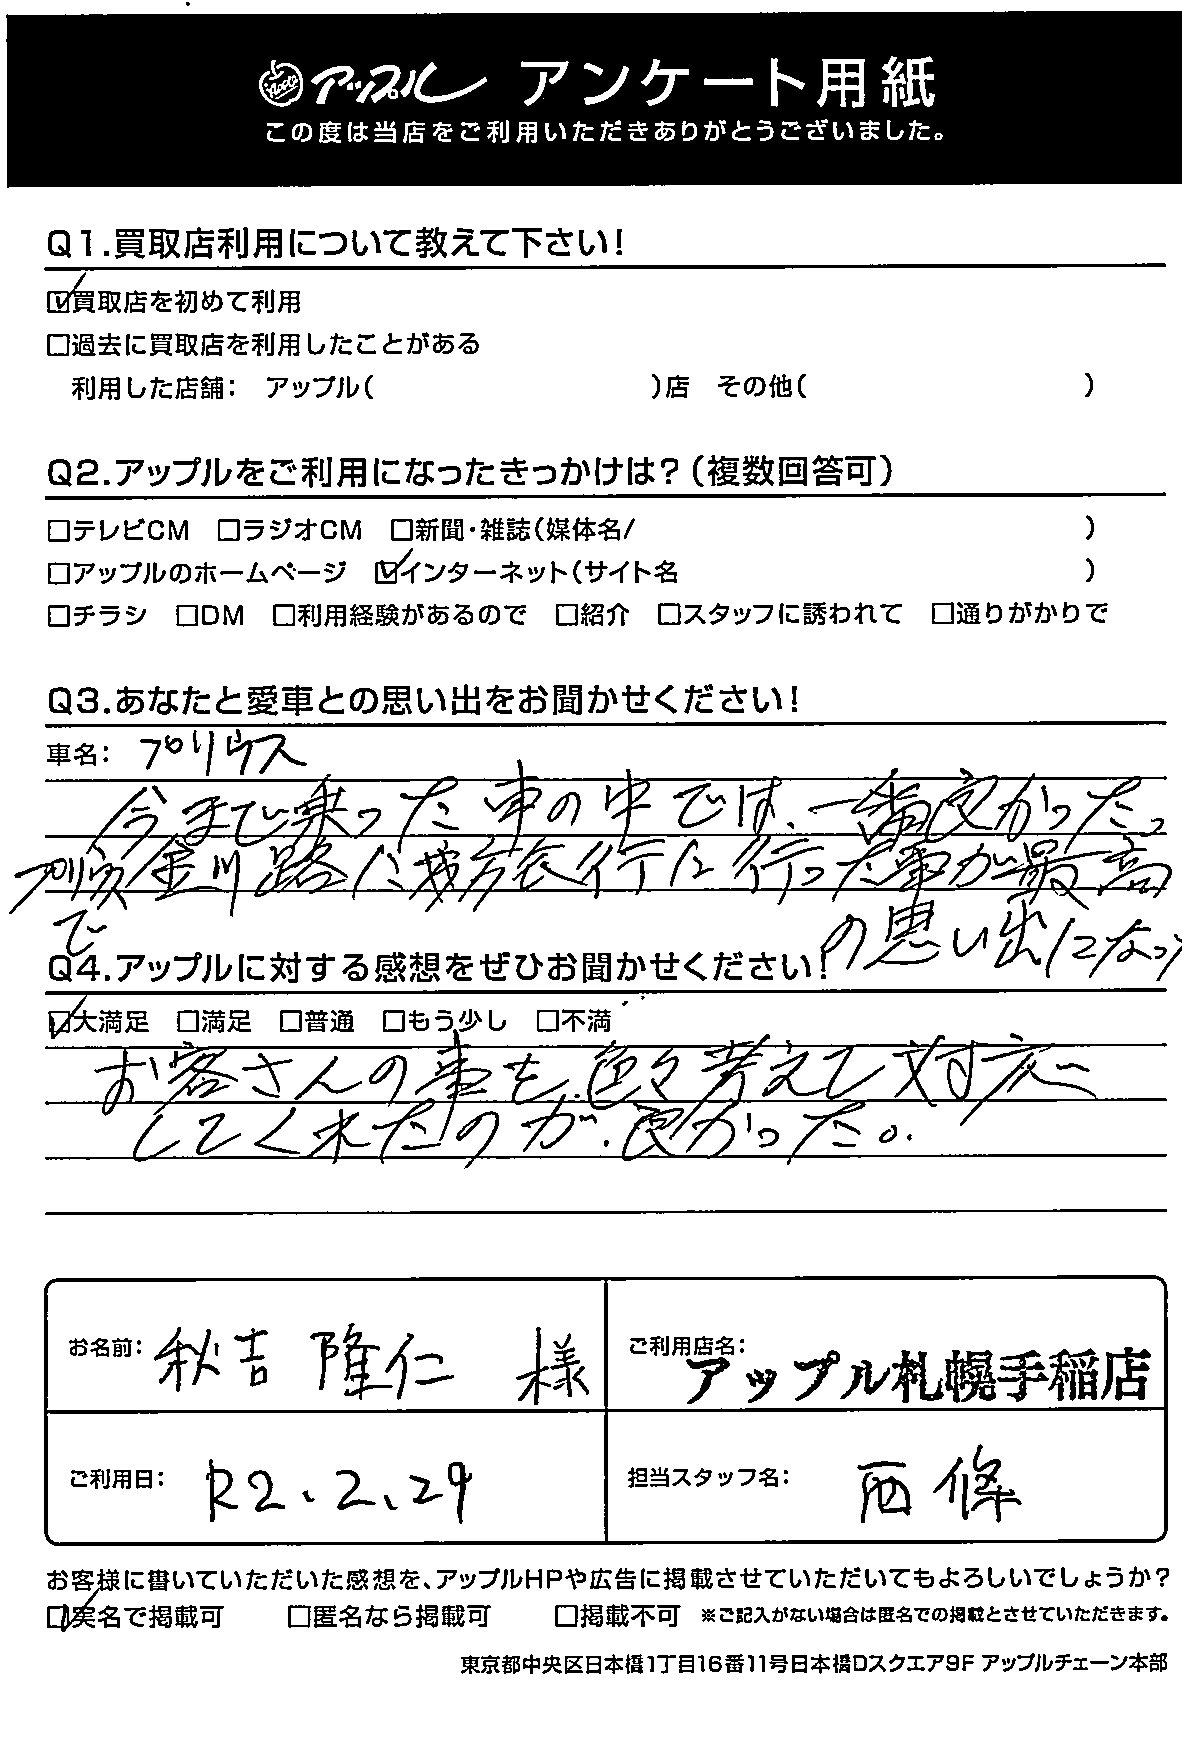 アップル アンケート用紙
この度は当店をご利用いただきありがとうございました。
Q1.買取店利用について教えて下さい!
☑買取店を初めて利用
□過去に買取店を利用したことがある
利用した店舗: アップル( )店 その他( )
Q2.アップルをご利用になったきっかけは?(複数回答可)
□テレビCM □ラジオCM □新聞・雑誌(媒体名/ )
□アップルのホームページ ☑インターネット(サイト名 )
□チラシ □DM □利用経験があるので □紹介 □スタッフに誘われて □通りがかりで
Q3.あなたと愛車との思い出をお聞かせください!
車名: プリウス
今まで乗った車の中では、一番良かった。
プリウス 路に 旅行に行った事が最高
で の思い出になっ
Q4.アップルに対する感想をぜひお聞かせください!
☑大満足 □満足 □普通 □もう少し □不満
お客さんの事を、色々考えて対応
してくれたのが、良かった。
お名前: 秋吉 隆仁 様
ご利用店名:
アップル札幌手稲店
ご利用日: R2、2、29
担当スタッフ名: 西條
お客様に書いていただいた感想を、アップルHPや広告に掲載させていただいてもよろしいでしょうか?
☑実名で掲載可 □匿名なら掲載可 □掲載不可 ※ご記入がない場合は匿名での掲載とさせていただきます。
東京都中央区日本橋1丁目16番11号日本橋Dスクエア9F アップルチェーン本部